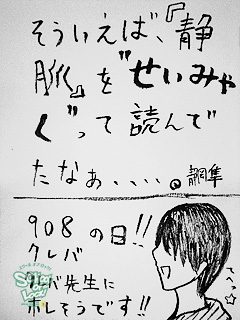 そういえば、『静
脈』を"せいみゃ
く"って読んで
たなぁ、、、。静隼
908の日!!
クレバ
先生に
ホレそうです!!
てへっ☆